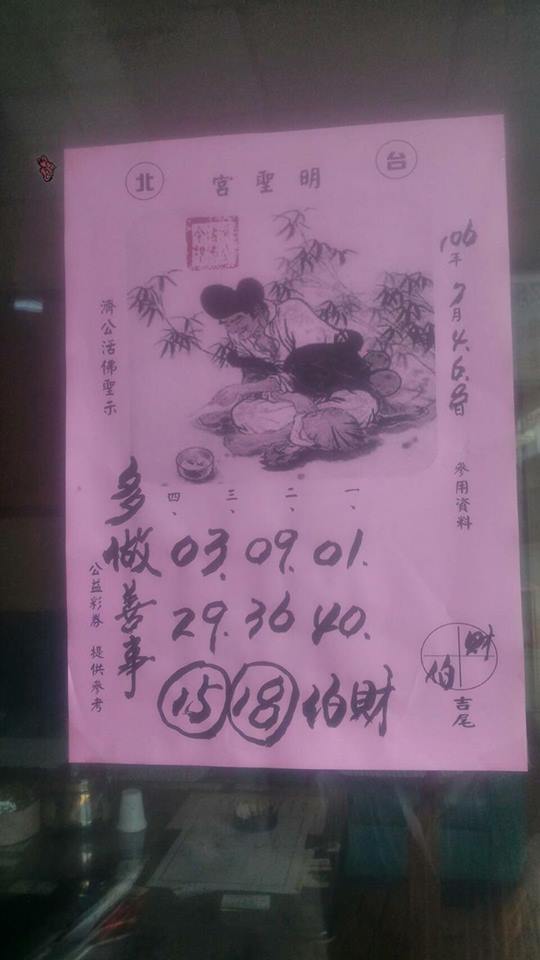 台 明聖宮 北
106年7月4.6.8日
參用資料
濟公活佛聖示
一、 二、 三、 四、
03. 09. 01.
29. 36 40.
15 18 伯財
多做善事
公益彩券 提供參考
財
伯
吉尾